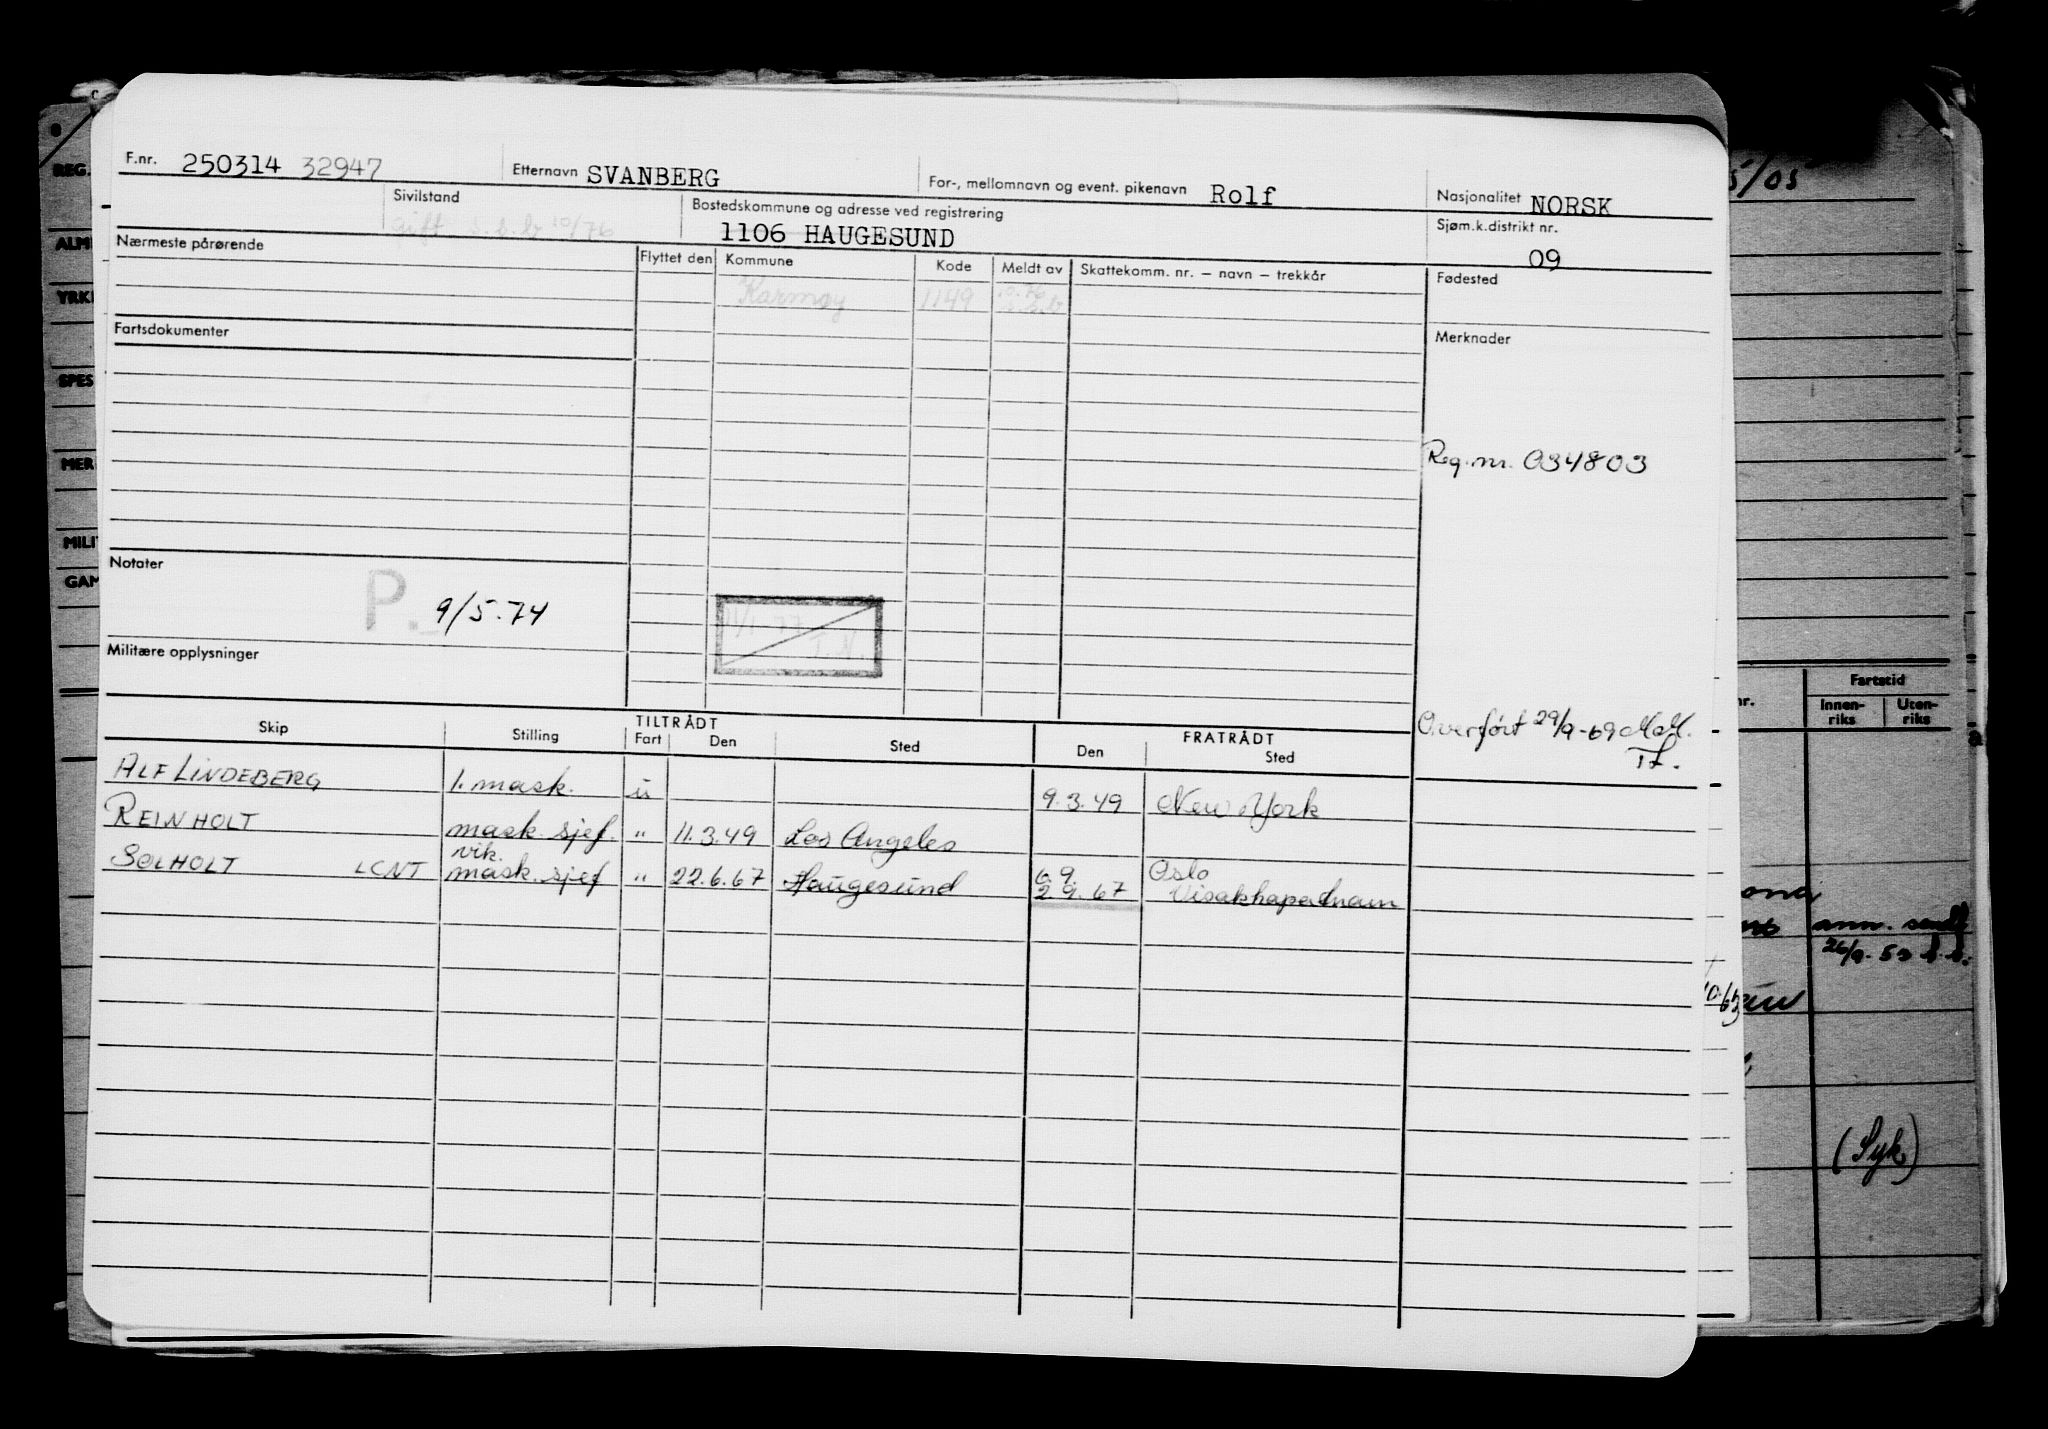 F.nr. 250314 32947 Etternavn SVANBERG For-, mellomnavn og event. pikenavn Rolf Nasjonalitet NORSK
Sivilstand gift s.b.b 10/76 Bostedskommune og adresse ved registrering 1106 HAUGESUND Sjøm.k.distrikt nr. 09
Nærmeste pårørende Flyttet den Kommune Kode Meldt av Skattekomm. nr. – navn – trekkår Fødested
Karmøy 1149
Fartsdokumenter Merknader
Reg.nr. 034803
Notater
P. 9/5.74
11/1-77
T.N.
Militære opplysninger
Overført 29/9-69
Skip Stilling TILTRÅDT Fart Den Sted FRATRÅDT Den Sted
ALF LINDEBERG 1. mask. u 9.3.49 New York
REINHOLT mask. sjef. " 11.3.49 Los Angeles
SOLHOLT LCNT vik. mask. sjef " 22.6.67 Haugesund 6.9. Oslo
2.9.67 Visakhapatnam
REG.
ALM
YRK
SPES
MER
MILI
GAM
5/05
nr.
Fartstid
Innen-riks Uten-riks
ann. sendt
26/9-53
10.63
(Syk)